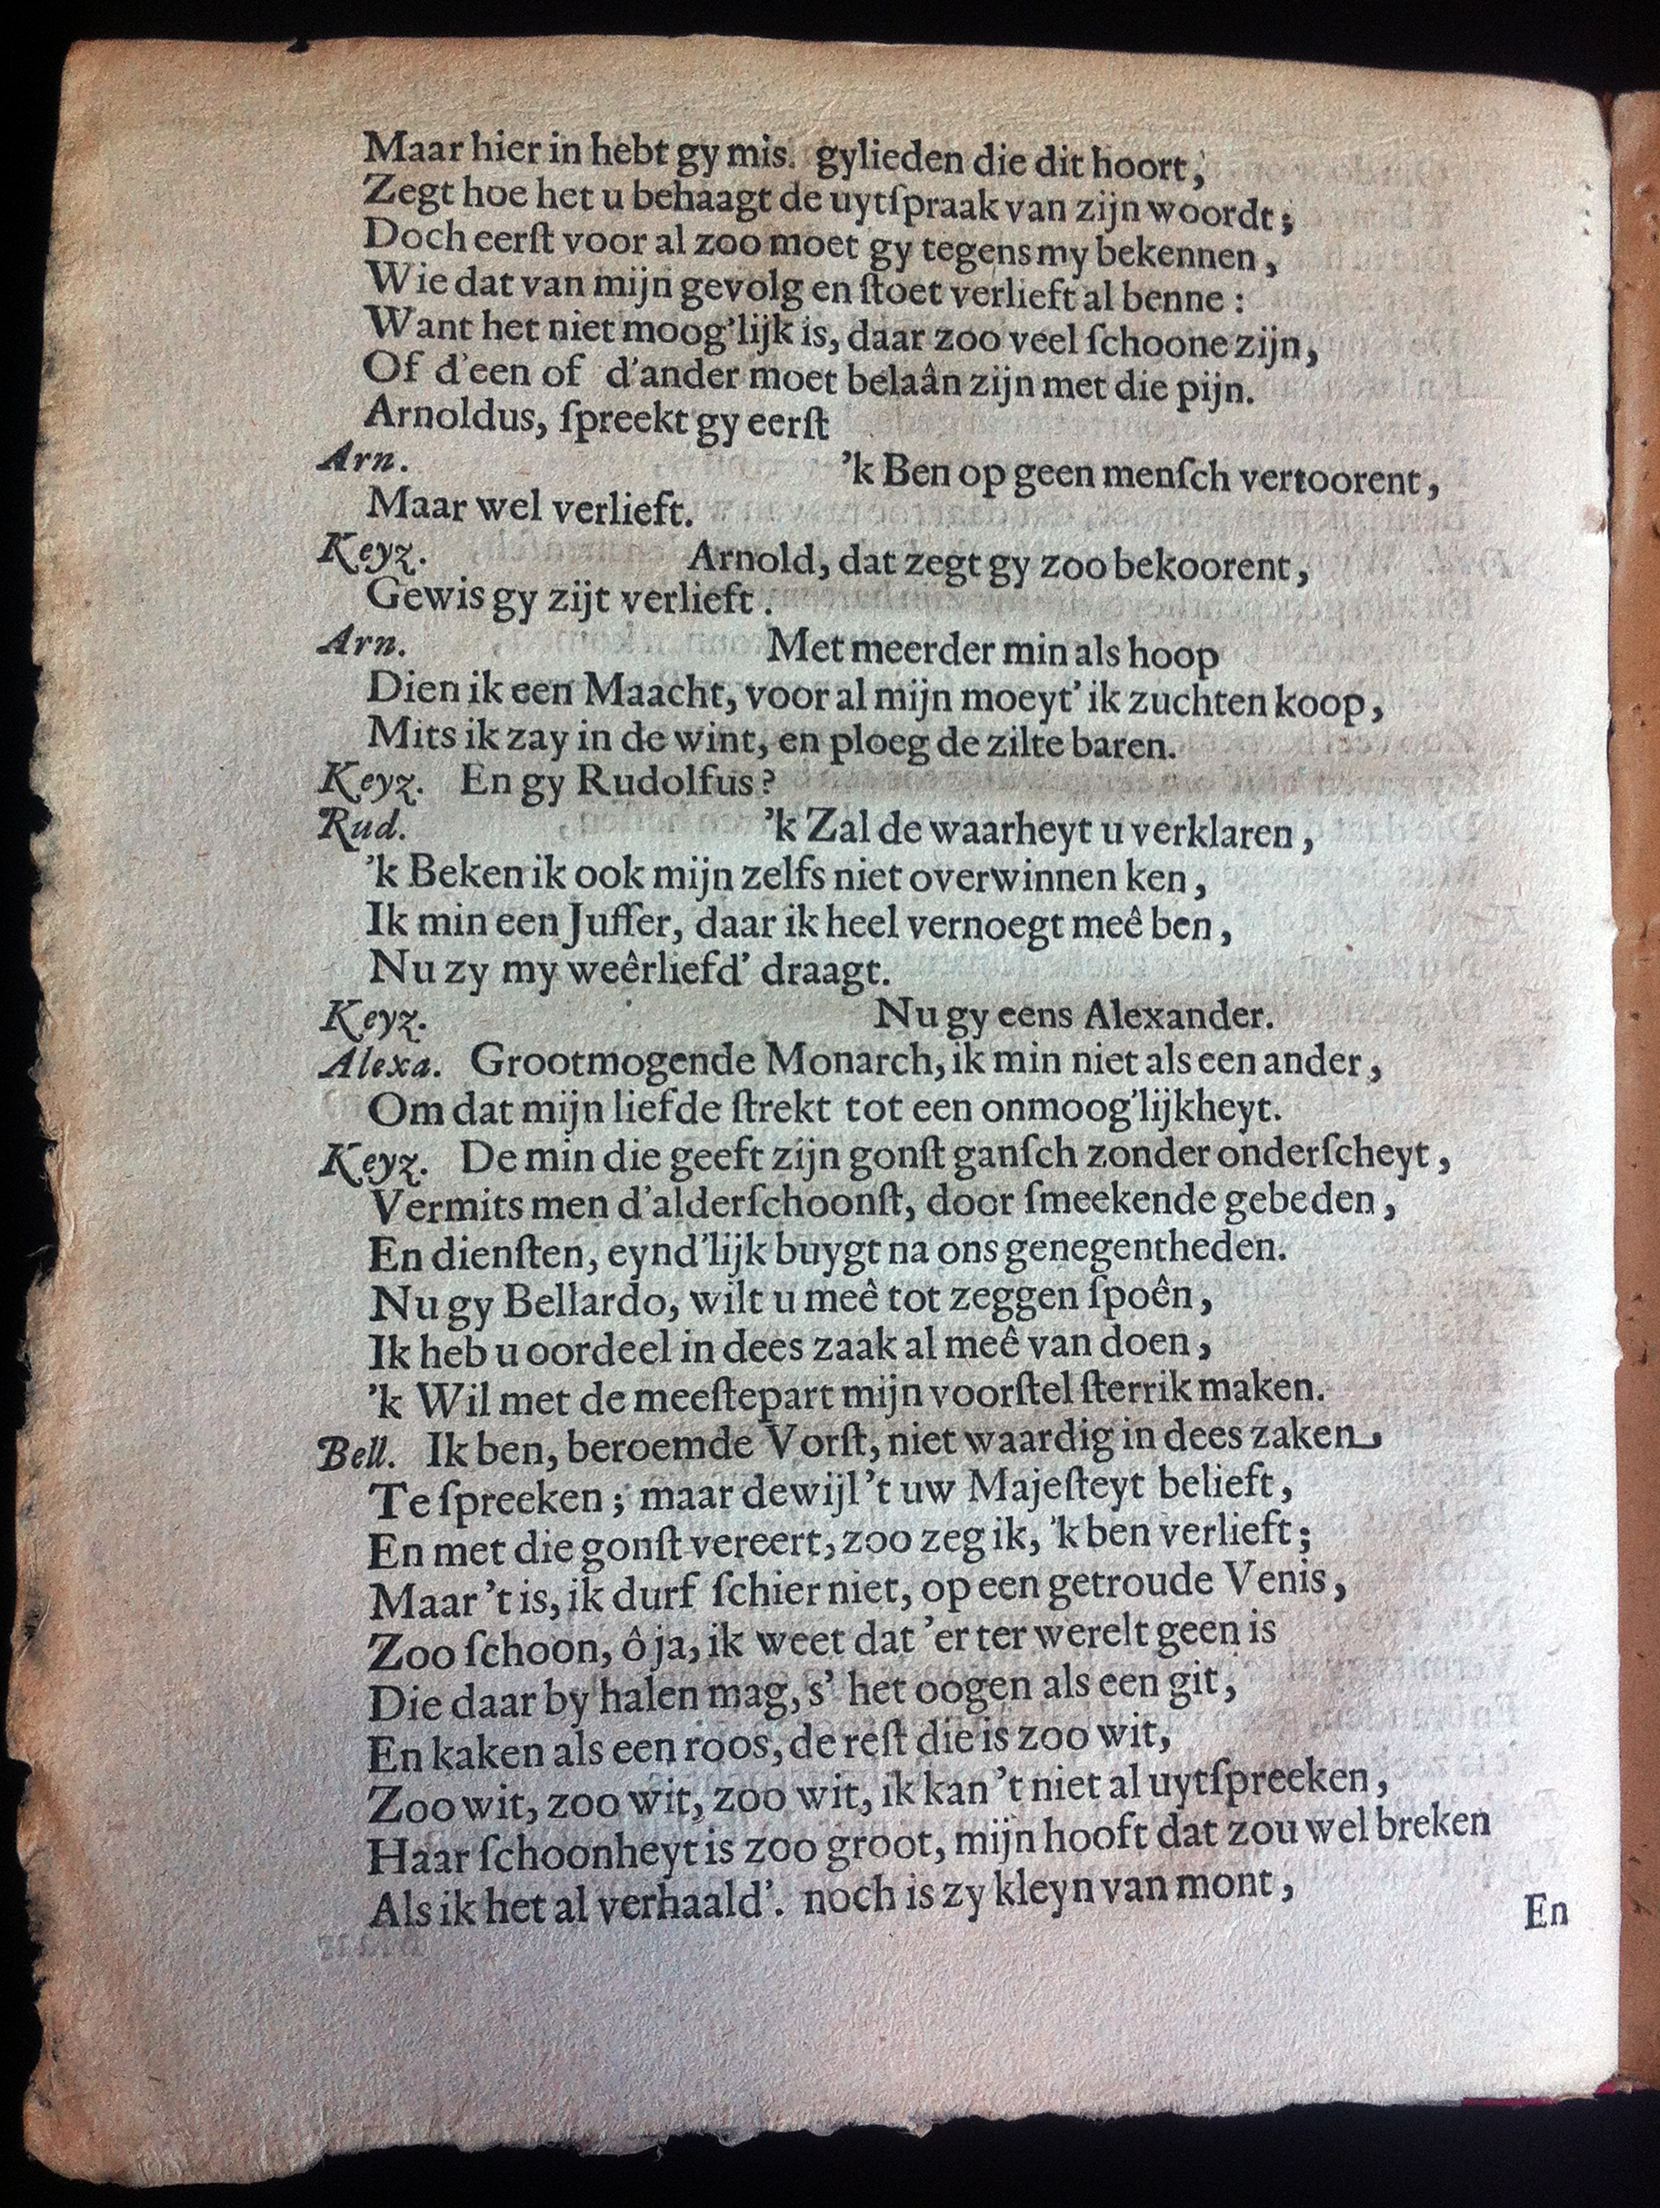 Maar hier in hebt gy mis. gylieden die dit hoort,
Zegt hoe het u behaagt de uytſpraak van zijn woordt;
Doch eerſt voor al zoo moet gy tegens my bekennen,
Wie dat van mijn gevolg en ſtoet verlieft al benne:
Want het niet moog'lijk is, daar zoo veel ſchoone zijn,
Of d'een of d'ander moet belaân zijn met die pijn.
Arnoldus, ſpreekt gy eerſt
Arn. 'k Ben op geen menſch vertoorent,
Maar wel verlieft.
Keyz. Arnold, dat zegt gy zoo bekoorent,
Gewis gy zijt verlieft.
Arn. Met meerder min als hoop
Dien ik een Maacht, voor al mijn moeyt' ik zuchten koop,
Mits ik zay in de wint, en ploeg de zilte baren.
Keyz. En gy Rudolfus?
Rud. 'k Zal de waarheyt u verklaren,
'k Beken ik ook mijn zelfs niet overwinnen ken,
Ik min een Juffer, daar ik heel vernoegt meê ben,
Nu zy my weêrliefd' draagt.
Keyz. Nu gy eens Alexander.
Alexa. Grootmogende Monarch, ik min niet als een ander,
Om dat mijn liefde ſtrekt tot een onmoog'lijkheyt.
Keyz. De min die geeft zijn gonſt ganſch zonder onderſcheyt,
Vermits men d'alderſchoonſt, door ſmeekende gebeden,
En dienſten, eynd'lijk buygt na ons genegentheden.
Nu gy Bellardo, wilt u meê tot zeggen ſpoên,
Ik heb u oordeel in dees zaak al meê van doen,
'k Wil met de meeſtepart mijn voorſtel ſterrik maken.
Bell. Ik ben, beroemde Vorſt, niet waardig in dees zaken,
Te ſpreeken; maar dewijl 't uw Majeſteyt belieft,
En met die gonſt vereert, zoo zeg ik, 'k ben verlieft;
Maar 't is, ik durf ſchier niet, op een getroude Venis,
Zoo ſchoon, ô ja, ik weet dat 'er ter werelt geen is
Die daar by halen mag, s' het oogen als een git,
En kaken als een roos, de reſt die is zoo wit,
Zoo wit, zoo wit, zoo wit, ik kan 't niet al uytſpreeken,
Haar ſchoonheyt is zoo groot, mijn hooft dat zou wel breken
Als ik het al verhaald'. noch is zy kleyn van mont,
En